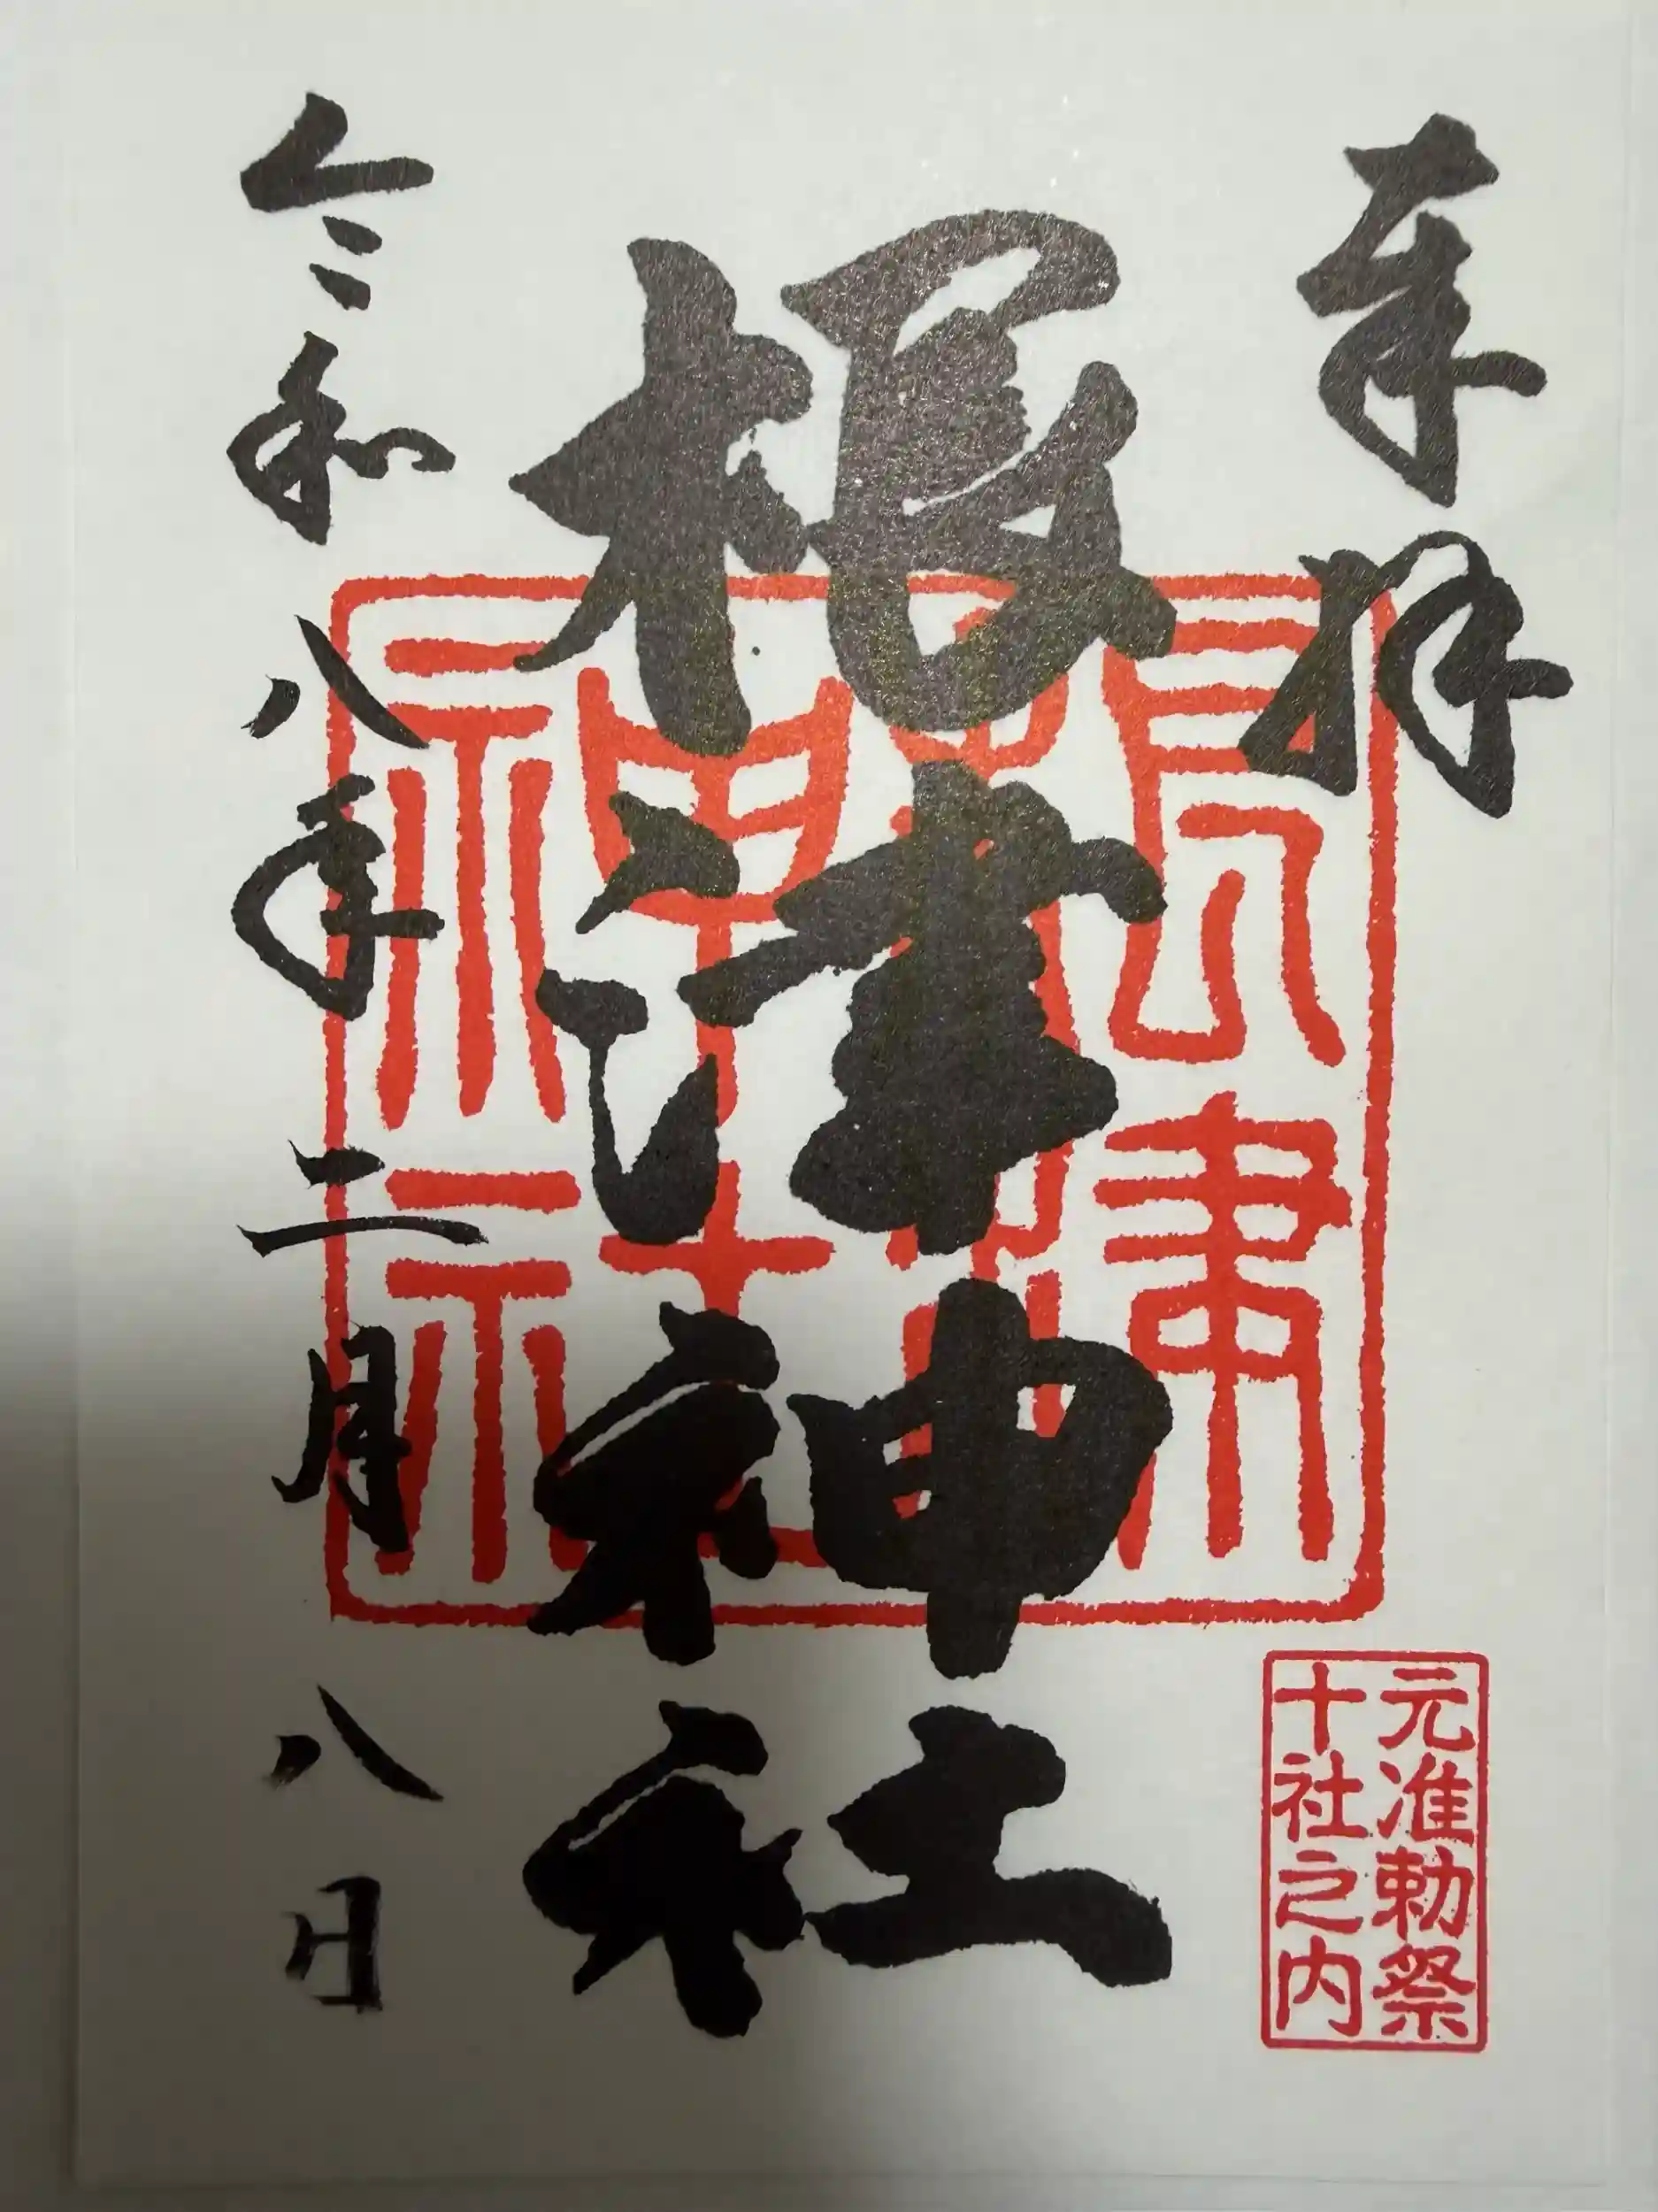 奉拝
根津神社
令和八年二月八日
根津神社
元准勅祭
十社之内